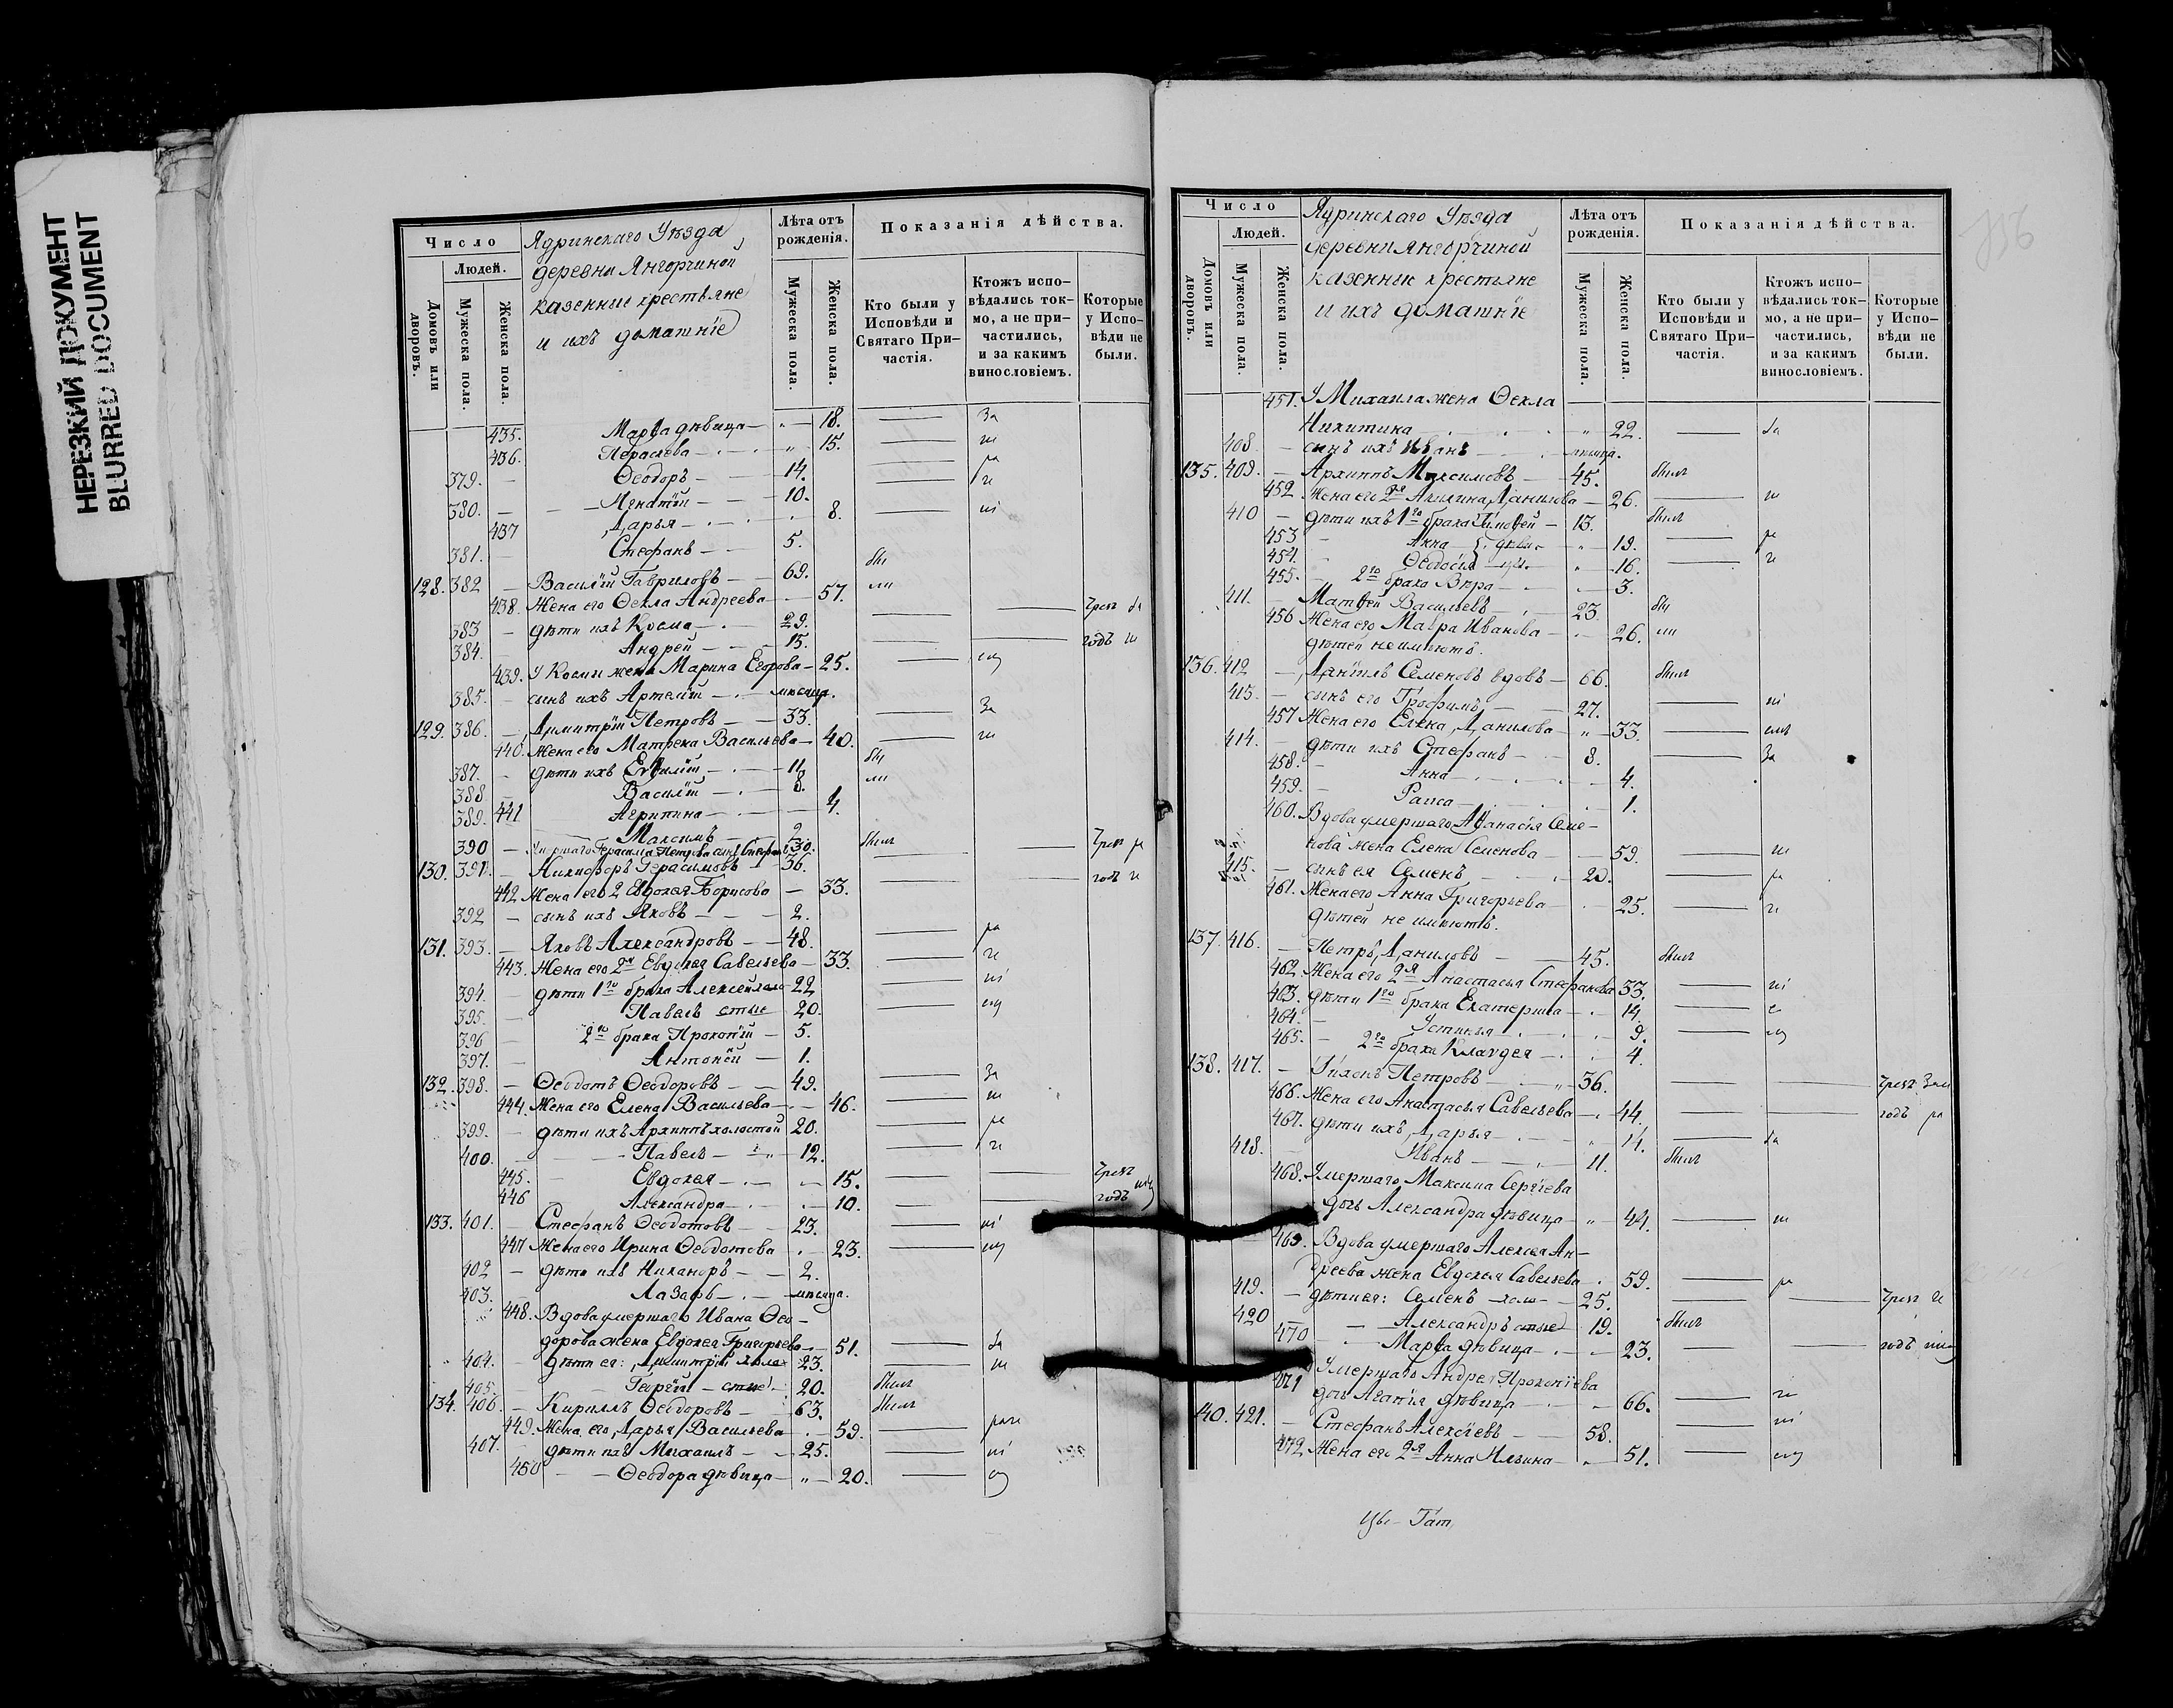 НЕРЕЗКИЙ ДОКУМЕНТ
BLURRED DOCUMENT
Число
Людей.
Домовъ или дворовъ.
Мужеска пола.
Женска пола.
Ядринскаго Уѣзда
деревни Янгорчиной
казенные крестьяне
и ихъ домашніе
Лѣта отъ рожденія.
Мужеска пола.
Женска пола.
Показанія дѣйства.
Кто были у Исповѣди и Святаго Причастія.
Ктожъ исповѣдались токмо, а не причастились, и за какимъ винословіемъ.
Которые у Исповѣди не были.
435. Марѳа дѣвица — " — 18. За
436. Параскева — " 15.
379. — Ѳеодоръ — 14.
380. — Игнатій — 10.
437 Дарья — 8.
381. — Стефанъ — 5.
128. 382 — Василій Гавриловъ — 69.
438. Жена его Ѳекла Андреева — 57.
383 — дѣти ихъ Косма — 29. чрезъ
384. — Андрей — 15. годъ
439. У Космы жена Марина Егорова — 25.
385. — сынъ ихъ Артемій — мѣсяца.
129. 386. — Димитрій Петровъ — 33. За
440. Жена его Матрена Васильева — 40.
387. — дѣти ихъ Евѳимій — 11.
388. — Василій — 8.
389. 441 Агрипина — 4.
Максимъ — 2
390 — Умершаго Герасима Петрова сынъ Стефанъ 30. былъ
130. 391. — Никифоръ Герасимовъ — 36.
442 Жена его 2 Евдокея Борисова — 33. годъ
392 — сынъ ихъ Яковъ — 2.
131. 393. — Яковъ Александровъ — 48.
443. Жена его 2я Евдокея Савельева — 33.
394. — дѣти 1го брака Алексей холо- 22
395. — Павелъ стые 20.
396 — 2го брака Прокопій — 5.
397. — Антоній — 1.
132. 398. — Ѳеодотъ Ѳеодоровъ — 49. За
444. Жена его Елена Васильева — 46.
399. — дѣти ихъ Архиппъ холостой 20.
400. — Павелъ — 12.
445. — Евдокея — 15. чрезъ
446 Александра — 10. годъ
133. 401. — Стефанъ Ѳеодотовъ — 23.
447 Жена его Ирина Ѳеодотова — 23.
402 — дѣти ихъ Никаноръ — 2.
403. — Лазарь — мѣсяца.
448. Вдова умершаго Ивана Ѳео-
дорова жена Евдокея Григорьева — 51. За
404. — дѣти ея: Димитрій холо- 23.
405. — Георгій — стые 20. былъ
134. 406. — Кириллъ Ѳеодоровъ — 63. былъ
449. Жена его Дарья Васильева — 59.
407. — дѣти ихъ Михаилъ — 25.
450 — Ѳеодора дѣвица — " — 20.
Число
Людей.
Домовъ или дворовъ.
Мужеска пола.
Женска пола.
Ядринскаго Уѣзда
деревни Янгорчиной
казенные крестьяне
и ихъ домашніе
Лѣта отъ рожденія.
Мужеска пола.
Женска пола.
Показанія дѣйства.
Кто были у Исповѣди и Святаго Причастія.
Ктожъ исповѣдались токмо, а не причастились, и за какимъ винословіемъ.
Которые у Исповѣди не были.
451. У Михаила жена Ѳекла
Никитина — " — 22. За
408 — сынъ ихъ Иванъ — мѣсяца.
135. 409. — Архиппъ Максимовъ — 45. былъ
452. Жена его 2я Акилина Данилова — 26.
410 — дѣти ихъ 1го брака Тимоѳей — 13. былъ
453 — Анна — 19.
454. — Ѳеодосія — " — 16.
455. — 2го брака Вѣра — 3.
411. — Матѳей Васильевъ — 23.
456 Жена его Мавра Иванова — 26.
дѣтей неимѣютъ.
136. 412 — Даніилъ Семеновъ вдовъ — 66. былъ
413. — сынъ его Трофимъ — 27.
457 Жена его Елена Данилова — " — 33.
414. — дѣти ихъ Стефанъ — 8. За
458. — Анна — 4.
459. — Раиса — 1.
460. Вдова умершаго Аѳанасія Семе-
нова жена Елена Семенова — 59.
415. — сынъ ея Семенъ — 20.
461. Жена его Анна Григорьева — 25.
дѣтей не имѣютъ.
137. 416. — Петръ Даниловъ — 45. былъ
462. Жена его 2я Анастасья Стефанова 33.
463. дѣти 1го брака Екатерина — 14.
464. — Устинья — 9.
465. — 2го брака Клавдея — 4.
138. 417. — Тихонъ Петровъ — 56. чрезъ
466. Жена его Анастасья Савельева — 44. годъ
467. дѣти ихъ Дарья — " — 14.
418. — Иванъ — 11. былъ
468. Умершаго Максима Сергеева
дочь Александра дѣвица — " — 44.
469. Вдова умершаго Алексея Ан-
дреева жена Евдокея Савельева — 59.
419. — дѣти ея: Семенъ холо- 25. чрезъ
420 — Александръ стые 19. былъ
470 — Марѳа дѣвица — 23. годъ
471 Умершаго Андрея Прокопіева
дочь Агапія дѣвица — 66.
140. 421. — Стефанъ Алексіевъ — 58.
472 Жена его 2я Анна Ильина — " — 51.